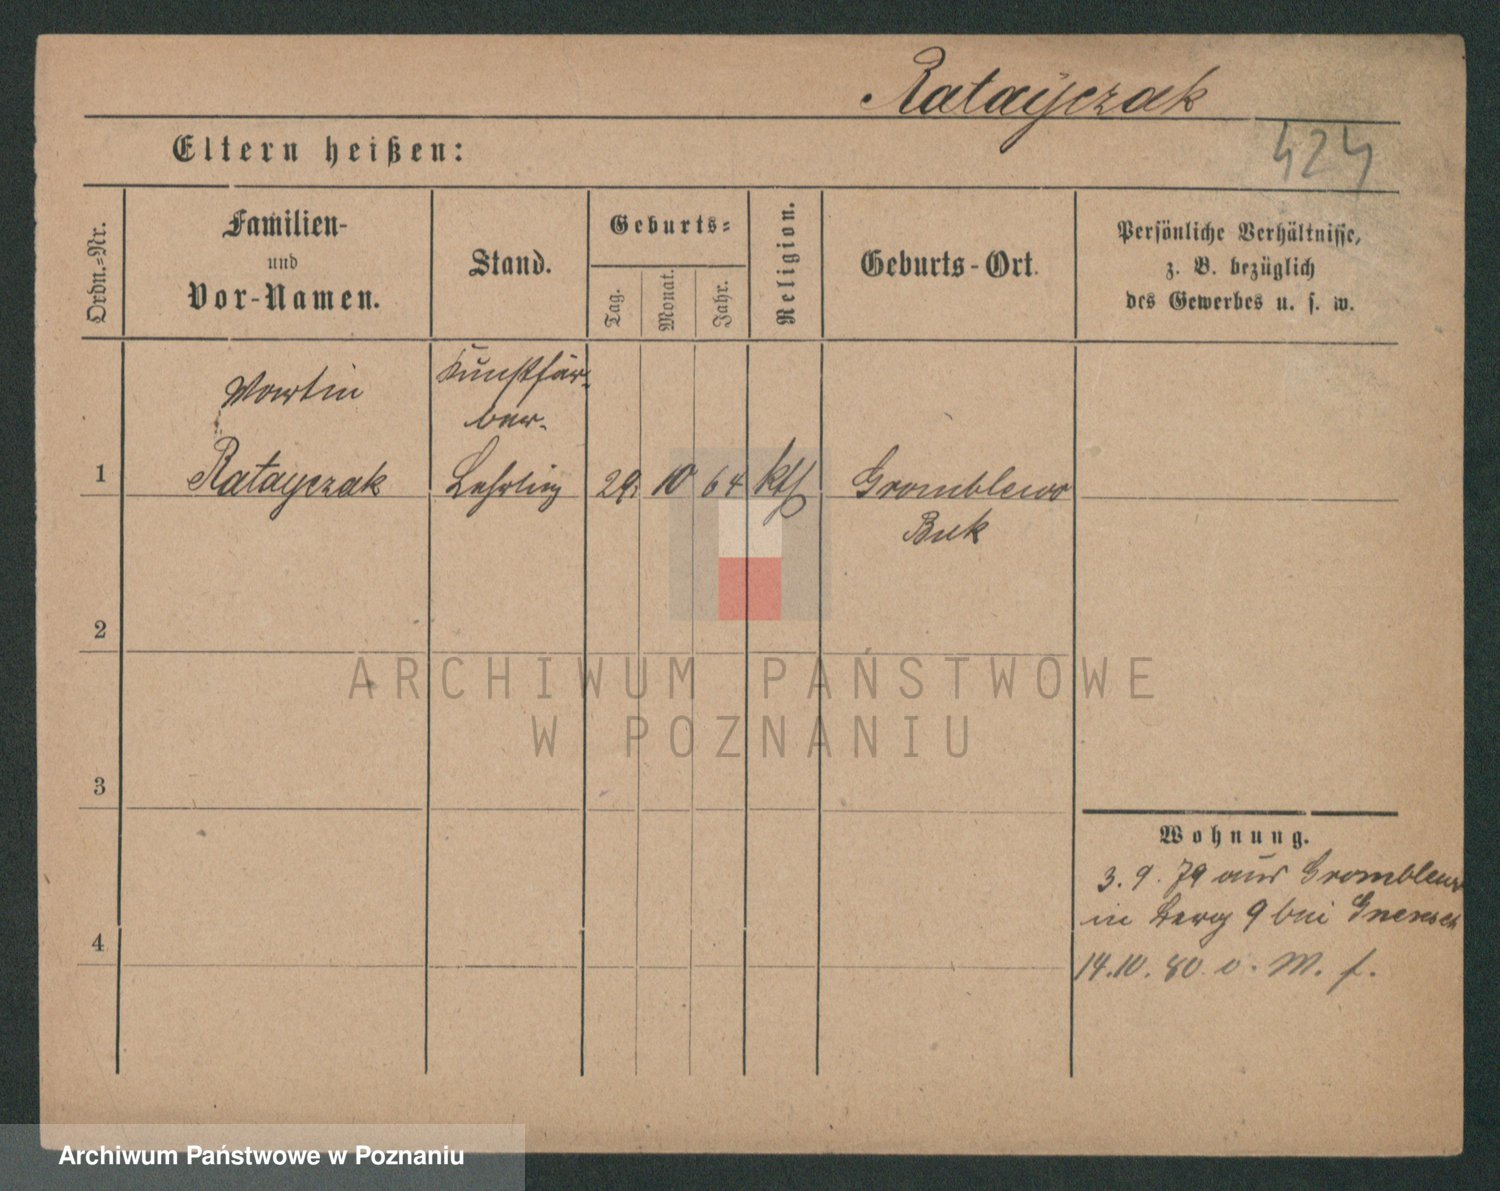 Ratayczak
424
Eltern heißen:
Ordn.-Nr.
Familien-
und
Vor-Namen.
Stand.
Geburts-
Tag.
Monat.
Jahr.
Religion.
Geburts-Ort.
Persönliche Verhältnisse,
z. B. bezüglich
des Gewerbes u. s. w.
1
Martin
Ratayczak
Kunstfär-
ber-
Lehrling
29. 10 64
kth
Gromblewo
Buk
2
3
4
Wohnung.
3. 9. 79 aus Gromblewo
in Berg 9 bei
14.10. 80 o. M. f.
ARCHIWUM PAŃSTWOWE
W POZNANIU
Archiwum Państwowe w Poznaniu